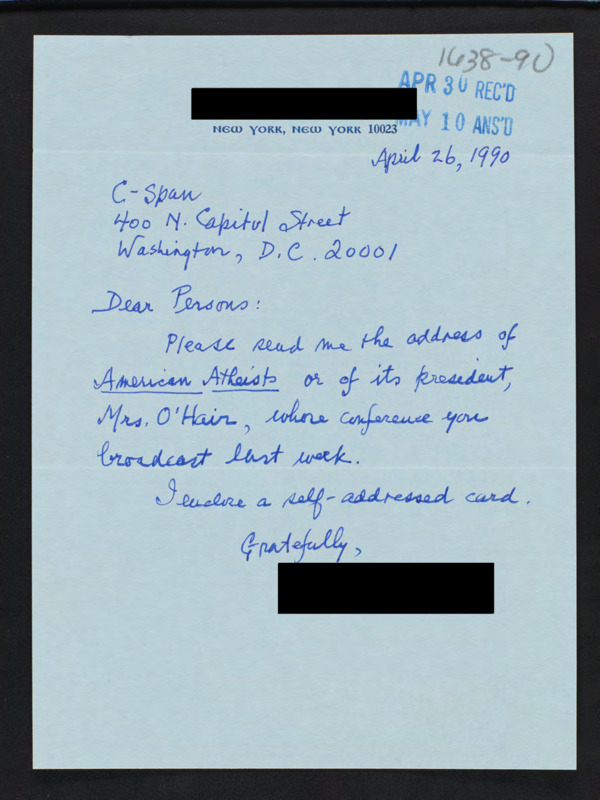 1638-90
APR 30 REC'D
MAY 10 ANS'D
NEW YORK, NEW YORK 10023
April 26, 1990
C-Span
400 N. Capitol Street
Washington, D.C. 20001
Dear Persons:
Please send me the address of
American Atheists or of its president,
Mrs. O'Hair, whose conference you
broadcast last week.
I enclose a self-addressed card.
Gratefully,